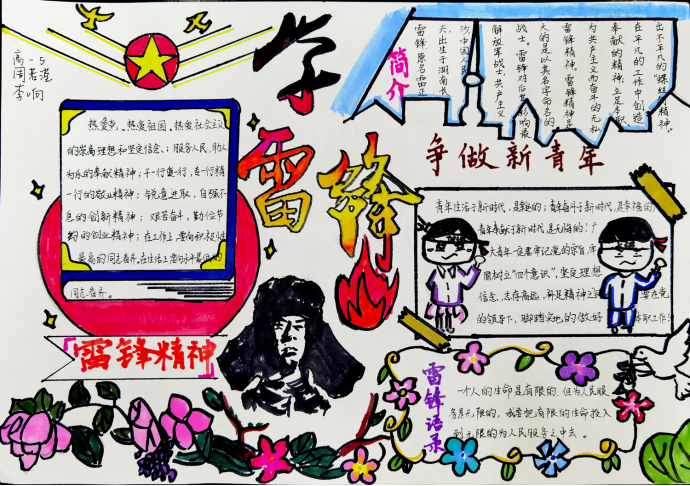 高一5
李响
学
雷
锋
简介
雷锋,原名雷正
兴,出生于湖南长
沙,中国人民
解放军战士,共产主义
战士。雷锋对后世影响最
大的是以其名字命名的
雷锋精神。雷锋精神是
为共产主义而奋斗的无私
奉献的精神,立足本职
在平凡的工作中创造
出不平凡的“螺丝钉精神。
热爱党、热爱祖国、热爱社会主义
的崇高理想和坚定信念;服务人民,助人
为乐的奉献精神;干一行爱一行,专一行精
一行的敬业精神;锐意进取,自强不
息的创新精神;艰苦奋斗,勤俭节
约的创业精神;在工作上,要向积极性
最高的同志看齐,在生活上要向水平最低的
同志看齐。
雷锋精神
争做新青年
青年生活于新时代,是幸运的;青年奋斗于新时代,是幸福的;
青年奉献于新时代,是无悔的!广
大青年一定要牢记党的宗旨,牢
固树立“四个意识”,坚定理想
信念,志存高远,
的领导下,脚踏实地的做好
本职工作!
雷锋语录
一个人的生命是有限的,但为人民服
务是无限的,我要把有限的生命投入
到无限的为人民服务之中去。